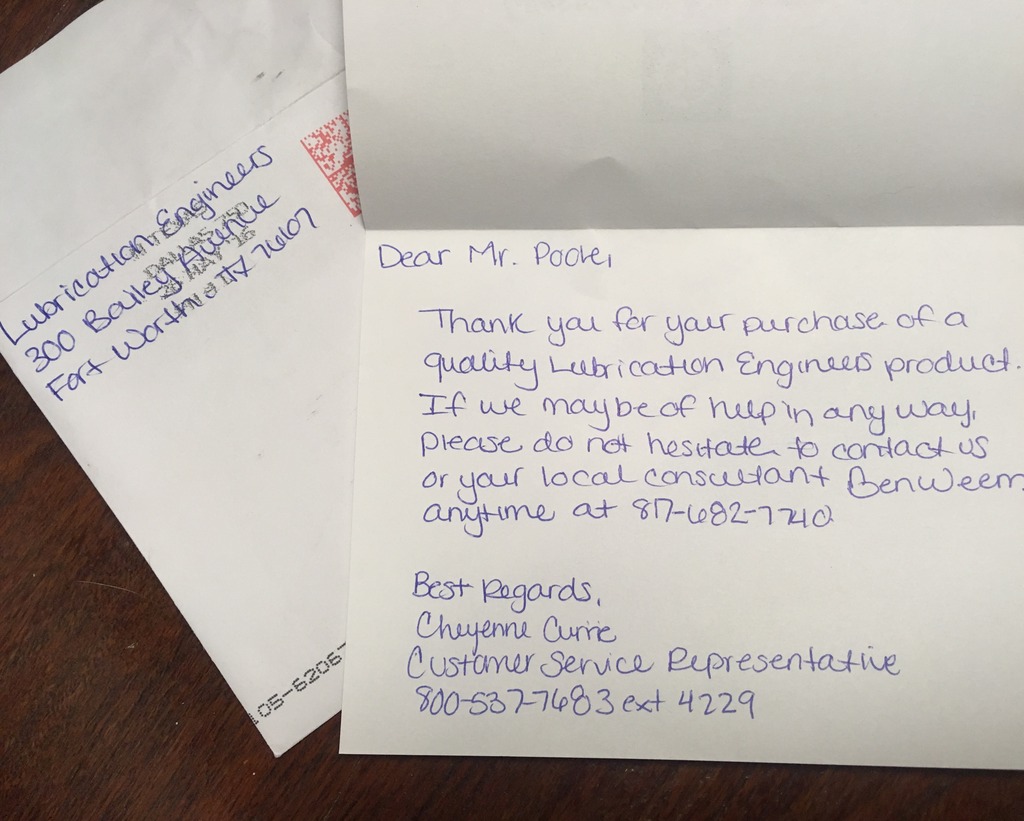 Lubrication Engineers
300 Bailey Avenue
Fort Worth TX 76107
Dear Mr. Poole,
Thank you for your purchase of a
quality Lubrication Engineers product.
If we may be of help in any way,
please do not hesitate to contact us
or your local consultant Ben Weem
anytime at 817-682-7740
Best Regards,
Cheyenne Currie
Customer Service Representative
800-537-7683 ext 4229
05-62067